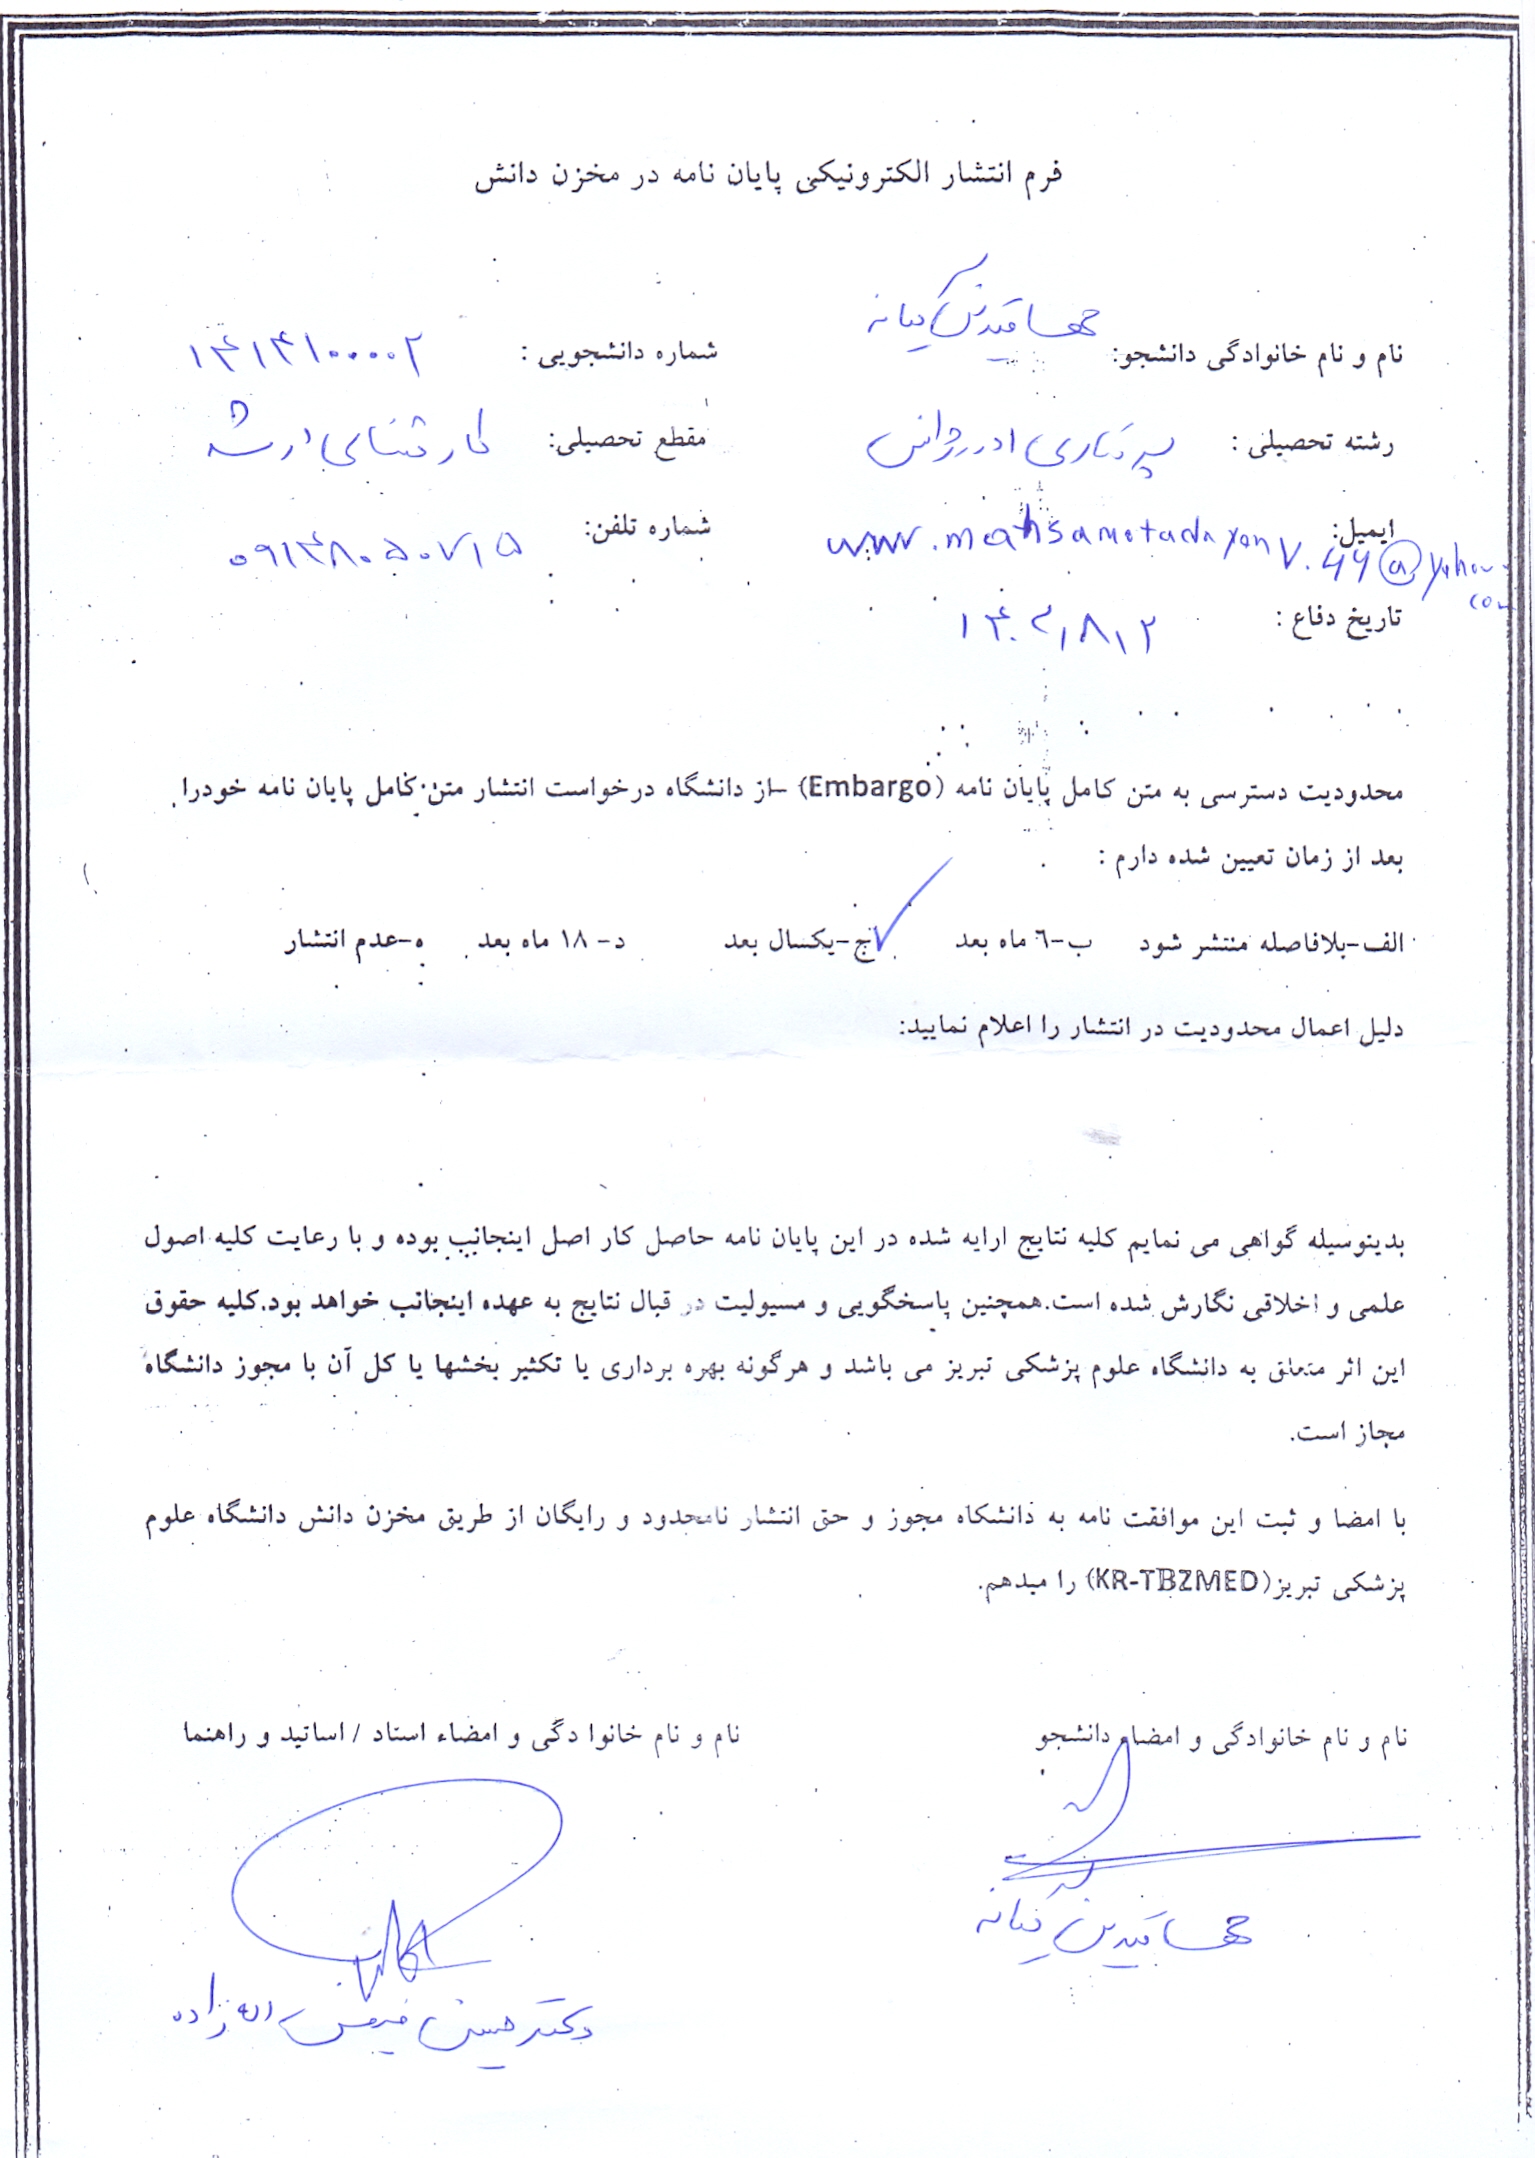 فرم انتشار الکترونیکی پایان نامه در مخزن دانش
نام و نام خانوادگی دانشجو: مهسا متدین کیانه شماره دانشجویی :
رشته تحصیلی : پرستاری اورژانس مقطع تحصیلی: کارشناسی ارشد
ایمیل: www.mahsamotadayen7.44@yahoo.com شماره تلفن: ۰۹۱۴۸۰۵۰۷۱۵
تاریخ دفاع : ۱۴۰۲/۸/۲
محدودیت دسترسی به متن کامل پایان نامه (Embargo) -از دانشگاه درخواست انتشار متن کامل پایان نامه خودرا
بعد از زمان تعیین شده دارم :
الف-بلافاصله منتشر شود ب-٦ ماه بعد ج-یکسال بعد ✓ د- ۱۸ ماه بعد ه-عدم انتشار
دلیل اعمال محدودیت در انتشار را اعلام نمایید:
بدینوسیله گواهی می نمایم کلیه نتایج ارایه شده در این پایان نامه حاصل کار اصل اینجانب بوده و با رعایت کلیه اصول
علمی و اخلاقی نگارش شده است.همچنین پاسخگویی و مسیولیت در قبال نتایج به عهده اینجانب خواهد بود.کلیه حقوق
این اثر متعلق به دانشگاه علوم پزشکی تبریز می باشد و هرگونه بهره برداری یا تکثیر بخشها یا کل آن با مجوز دانشگاه
مجاز است.
با امضا و ثبت این موافقت نامه به دانشگاه مجوز و حق انتشار نامحدود و رایگان از طریق مخزن دانش دانشگاه علوم
پزشکی تبریز(KR-TBZMED) را میدهم.
نام و نام خانوادگی و امضاء دانشجو نام و نام خانوا دگی و امضاء استاد / اساتید و راهنما
مهسا متدین کیانه
دکتر حسین فیض اله زاده